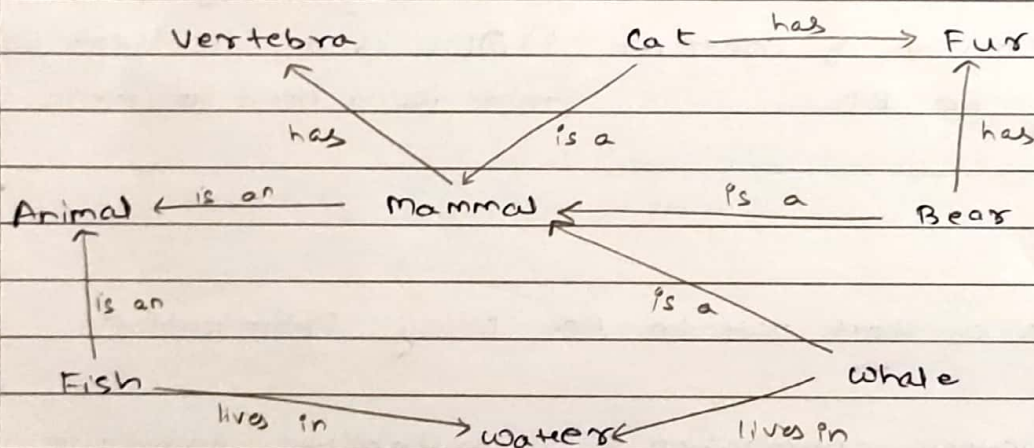 Vertebra Cat has Fur
has is a has
Animal is an Mammal is a Bear
is an is a
Fish Whale
lives in Water lives in